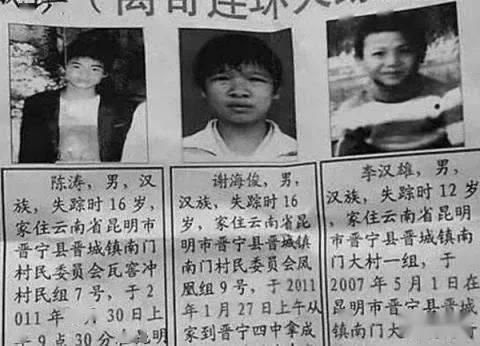 （离奇连环失踪
陈涛，男，汉
族，失踪时 16 岁，
家住云南省昆明市
晋宁县晋城镇南门
村民委员会瓦窑冲
村民组 7 号，于 2
011 年 月 30 日上
9 点 30 分 昆明
谢海俊，男，
汉族，失踪时 16
岁，家住云南省昆
明市晋宁县晋城镇
南门村民委员会凤
凰组 9 号，于 2011
年 1 月 27 日上午从
家到晋宁四中拿成
李汉雄，男，
汉族，失踪时 12 岁，
家住云南省昆明
市晋宁县晋城镇南
门大村一组，于
2007 年 5 月 1 日在
昆明市晋宁县晋城
镇南门大